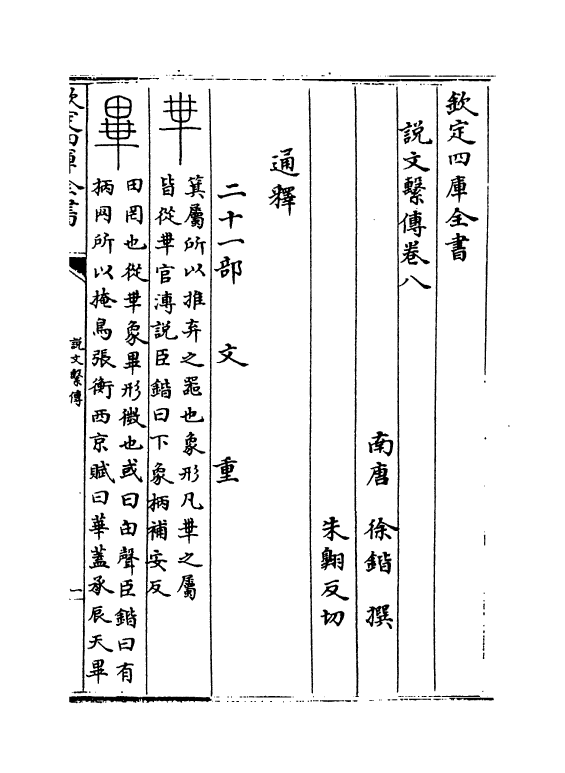 欽定四庫全書
説文繫傳卷八
南唐 徐鍇 撰
朱翺反切
通釋
二十一部 文 重
𠦒
箕屬所以推弃之器也象形凡𠦒之屬
皆從𠦒官溥説臣鍇曰下象柄補安反
畢
田罔也從𠦒象畢形微也或曰甶聲臣鍇曰有
柄网所以掩鳥張衡西京賦曰華蓋承辰天畢
欽定四庫全書
説文繫傳
一